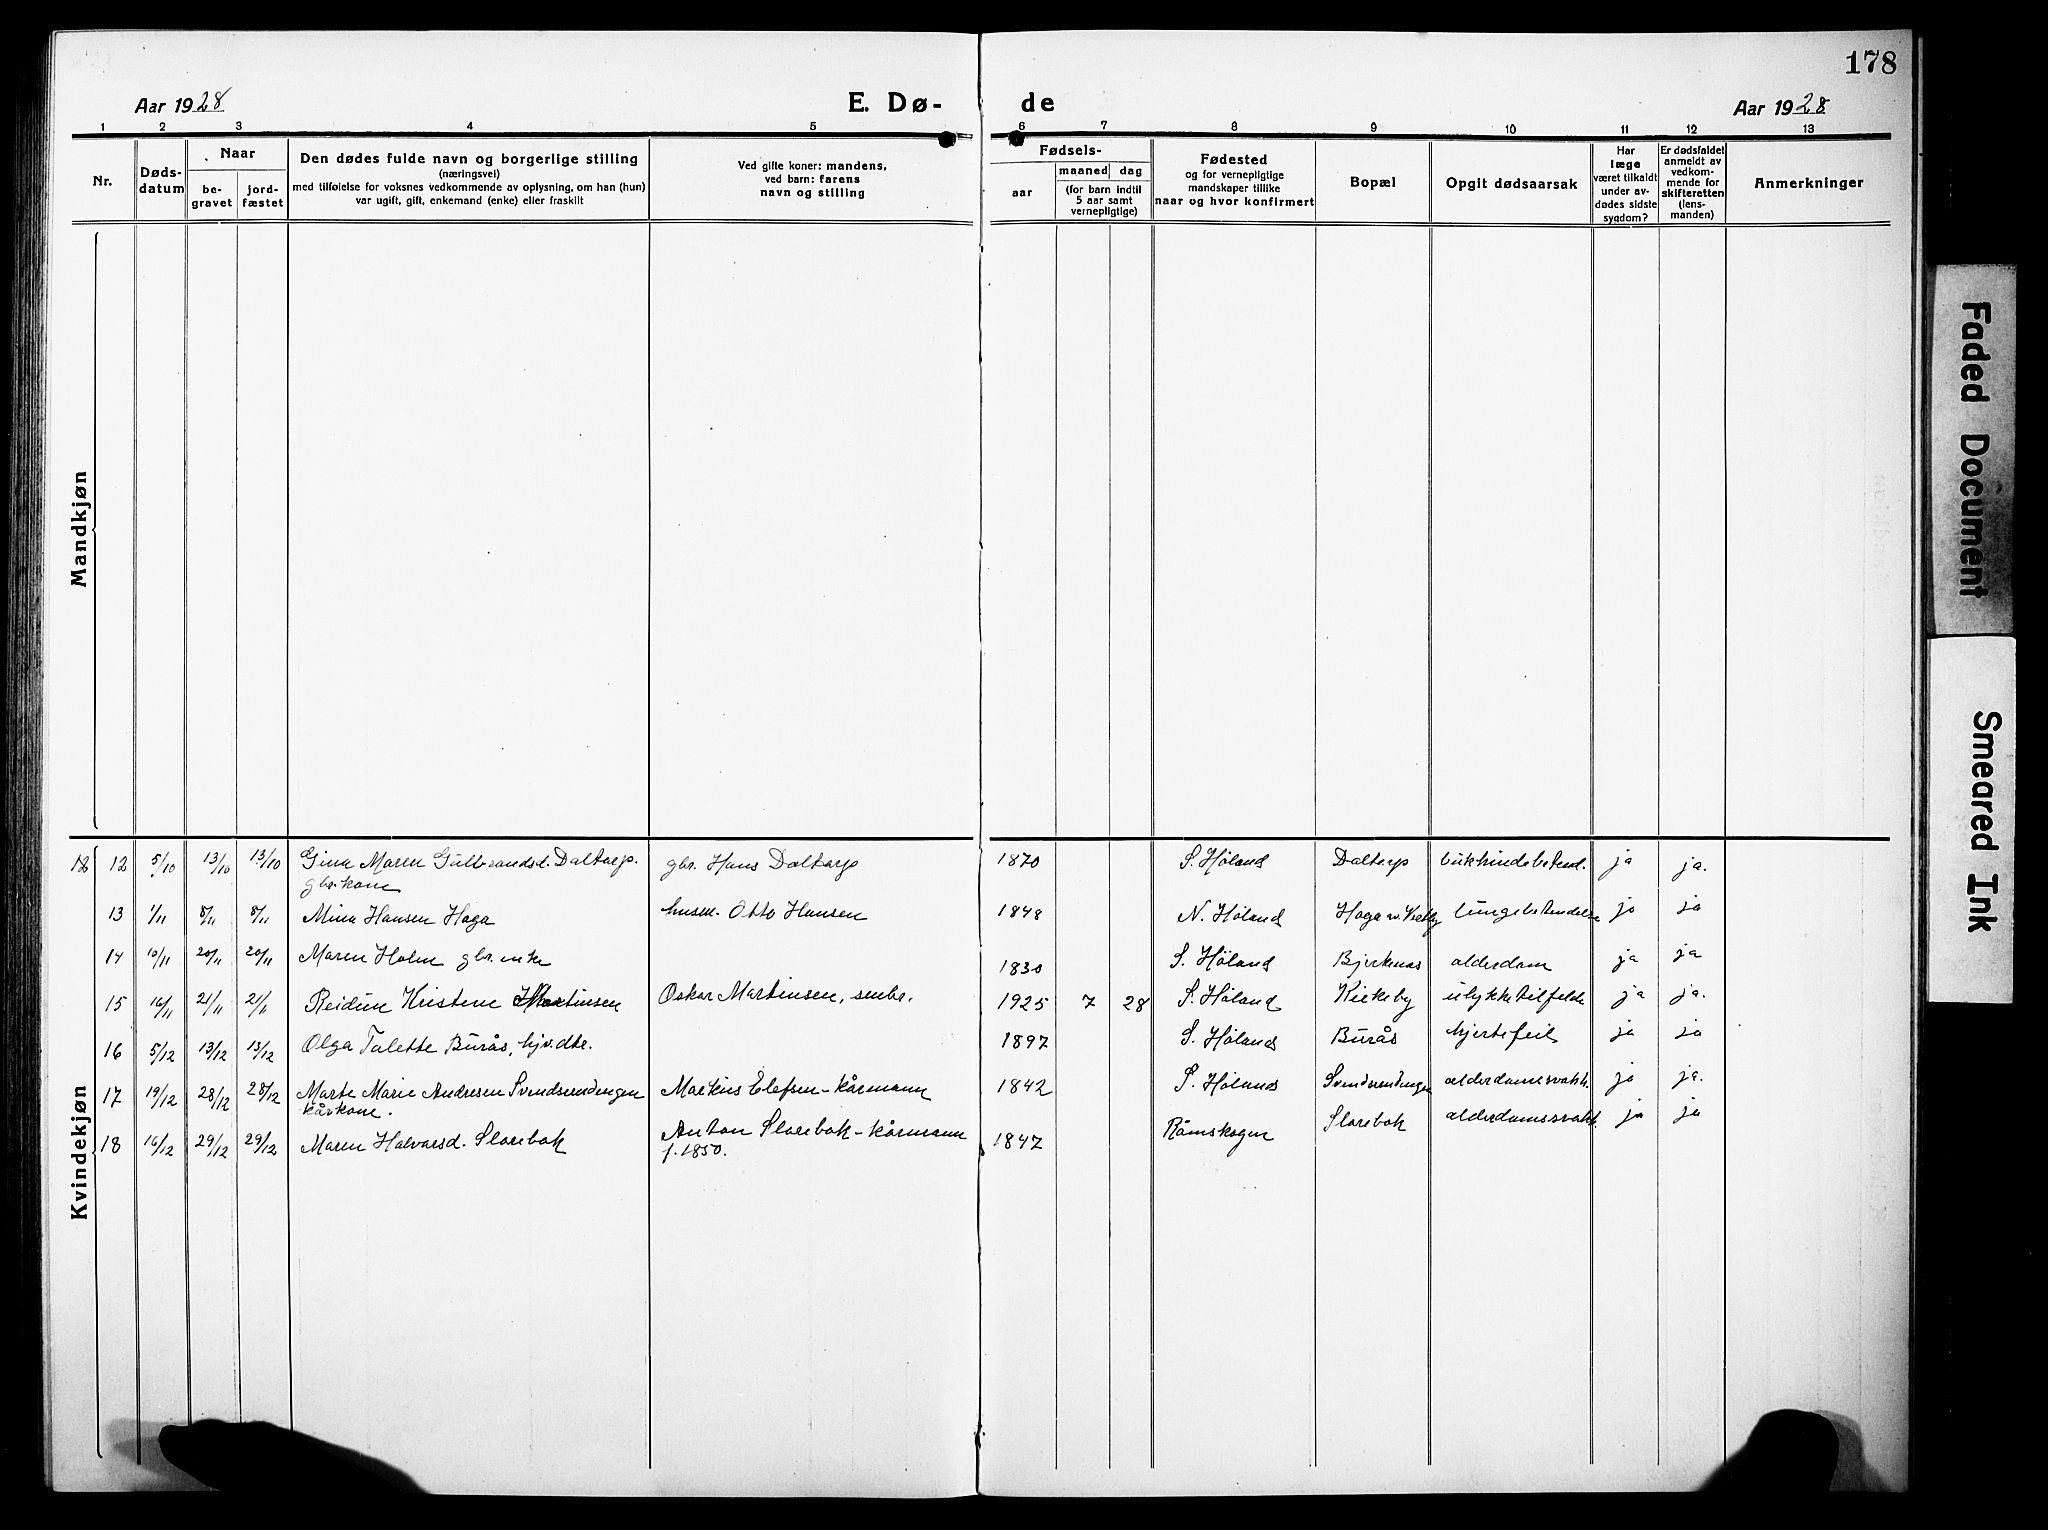 178
Aar 1928
E. Dø-
de
Aar 1928
1 2 3 4 5 6 7 8 9 10 11 12 13
Nr.
Døds-
datum
Naar
be-
gravet
jord-
fæstet
Den dødes fulde navn og borgerlige stilling
(næringsvei)
med tilføielse for voksnes vedkommende av oplysning, om han (hun)
var ugift, gift, enkemand (enke) eller fraskilt
Ved gifte koner: mandens,
ved barn: farens
navn og stilling
Fødsels-
aar
maaned dag
(for barn indtil
5 aar samt
vernepligtige)
Fødested
og for vernepligtige
mandskaper tillike
naar og hvor konfirmert
Bopæl
Opgit dødsaarsak
Har
læge
været tilkaldt
under av-
dødes sidste
sygdom?
Er dødsfaldet
anmeldt av
vedkom-
mende for
skifteretten
(lens-
manden)
Anmerkninger
Mandkjøn
Kvindekjøn
12 12 5/10 13/10 13/10 Gina Maren Gulbrandsd. Daltorp. gbr. Hans Daltorp 1870 S. Høland Daltorp bukhindebetend. ja ja.
gbr.kone
13 1/11 8/11 8/11 Mina Hansen Haga husm. Otto Hansen 1848 N. Høland Haga lungebetendelse ja ja
14 10/11 20/11 20/11 Maren Holm gbr. enke 1830 S. Høland Bjerkenes alderdom ja ja
15 16/11 21/11 21/11 Reidun Kristine Martinsen Oskar Martinsen, 1925 7 28 S. Høland Kirkeby ulykketilfelde ja ja.
16 5/12 13/12 13/12 Olga Talette Burås, hjv. dtr. 1897 S. Høland Burås hjertefeil ja ja
17 19/12 28/12 28/12 Marte Marie Andresen Svendsrudengen Markus Elefsen - kårmann 1842 S. Høland Svendsrudengen alderdomssvakh. ja ja.
kårkone.
18 16/12 29/12 29/12 Maren Halvarsd. Slorebok Anton Slorebok - kårmann 1847 Rømskogen Slorebok alderdomssvakh. ja ja
f. 1850.
Faded Document
Smeared Ink